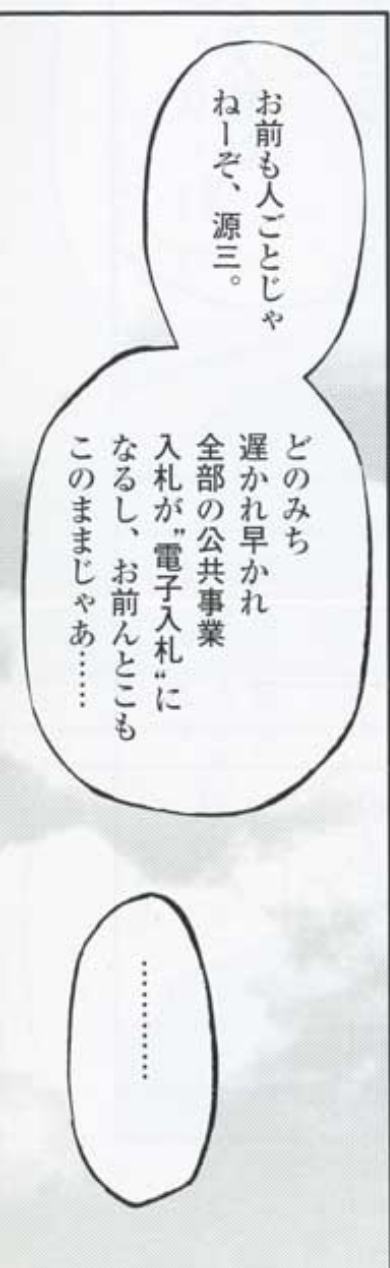 お前も人ごとじゃ
ねーぞ、源三。
どのみち
遅かれ早かれ
全部の公共事業
入札が〝電子入札〟に
なるし、お前んとこも
このままじゃあ……
…………